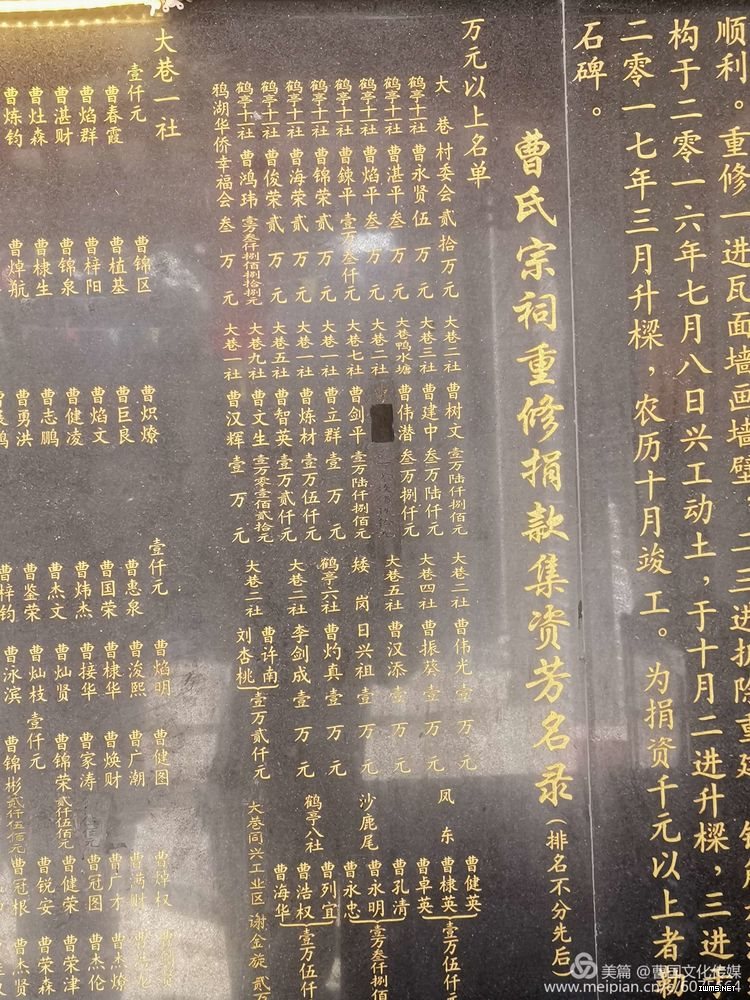 顺利。重修一进瓦面墙画墙壁，二三进拆除重建
构于二零一六年七月八日兴工动土，于十月二进升樑，三进
二零一七年三月升樑，农历十月竣工。为捐资千元以上者
石碑。
曹氏宗祠重修捐款集资芳名录（排名不分先后）
万元以上名单
大巷村委会 贰拾万元
鹤亭十一社 曹永贤 伍万元
鹤亭十一社 曹湛平 叁万元
鹤亭十一社 曹焰平 叁万元
鹤亭十一社 曹鍊平 壹万叁仟元
鹤亭十一社 曹锦荣 贰万元
鹤亭十一社 曹海荣 贰万元
鹤亭十一社 曹俊荣 贰万元
鹤亭十一社 曹鸿玮 壹万叁仟捌佰捌拾捌元
鸦湖华侨幸福会 叁万元
大巷二社 曹树文 壹万陆仟捌佰元
大巷三社 曹建中 叁万陆仟元
大巷鸭水塘 曹伟潜 叁万捌仟元
大巷二社
大巷七社 曹剑平 壹万陆仟捌佰元
大巷一社 曹立群 壹万元
大巷一社 曹炼材 壹万伍仟元
大巷五社 曹智英 壹万贰仟元
大巷九社 曹文生 壹万零壹佰贰拾元
大巷一社 曹汉辉 壹万元
大巷二社 曹伟光 壹万元
大巷四社 曹振葵 壹万元
大巷五社 曹汉添 壹万元
矮岗 日兴祖 壹万元
鹤亭六社 曹灼真 壹万元
大巷二社 李剑成 壹万元
大巷二社 曹许南 刘杏桃 壹万贰仟元
凤东 曹健英 曹棣英 曹卓英 壹万伍仟元
沙鹿尾 曹孔清 曹永明 曹永忠 壹万叁仟捌佰
鹤亭八社 曹列宜 曹浩权 曹海华 壹万伍仟
大巷同兴工业区 谢金旋 贰万
大巷一社
壹仟元
曹春霞 曹锦区 曹炽燎
曹焰群 曹植基 曹巨良
曹湛财 曹梓阳 曹焰文
曹灶森 曹锦泉 曹健凌
曹炼钧 曹棣生 曹志鹏
曹焯航 曹勇洪
壹仟元
曹焰明 曹健图 曹焯权
曹惠泉 曹浚熙 曹广潮 曹满财
曹国荣 曹棣华 曹焕财 曹广才 曹杰燎
曹炜杰 曹接华 曹家涛 曹冠图 曹杰伦
曹杰文 曹灿贤 曹锦荣 贰仟伍佰元 曹健荣 曹荣津
曹鉴荣 曹灿枝 壹仟元 曹锐安 曹荣森
曹梓钧 曹泳滨 曹锦彬 贰仟伍佰元 曹冠根 曹杰贤
美篇 @曹国文化传媒
www.meipian.cn/c/
IWMS.NET